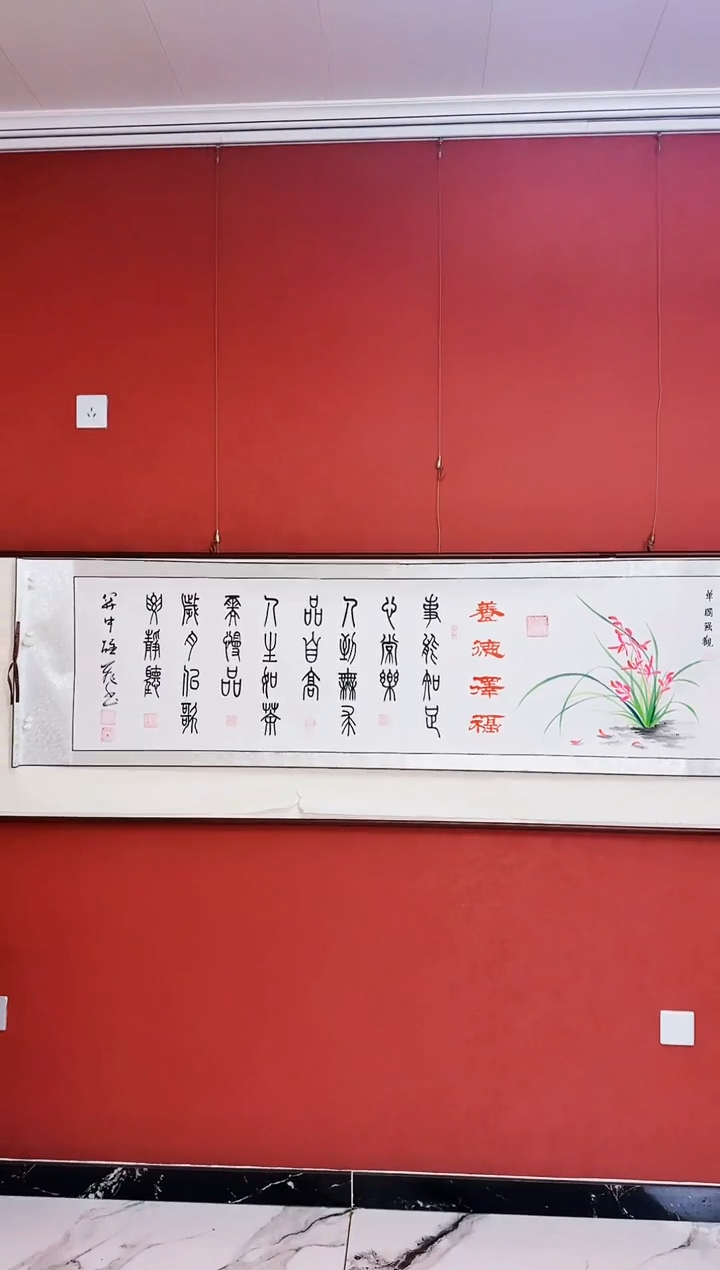 養德澤福
事能知足
心常樂
人到無求
品自高
人生如茶
需慢品
歲月似歌
要靜聽